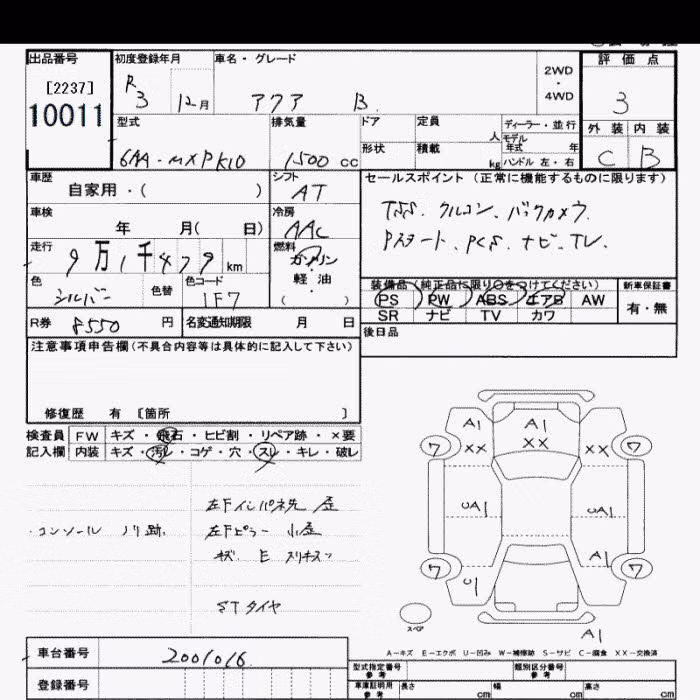 出品番号 初度登録年月 車名・グレード 評価点
[2237] R 2WD
10011 3 12月 アクア B ・ 3
4WD
型式 排気量 ドア 定員 ディーラー・並行 外装 内装
人 モデル
6AA-MXPK10 1500 cc 形状 積載 年式 年 C B
kg ハンドル 左・右
車歴 シフト セールスポイント(正常に機能するものに限ります)
自家用・( ) AT
車検 冷房 TSS. クルコン. バックカメラ.
年 月( 日) AAC Pスタート. PCS. ナビ. TV.
走行 燃料
9万1千479km ガソリン
色 色替 色コード 軽油 装備品(純正品に限り○をつけてください) 新車保証書
シルバー 1F7 ( ) PS PW ABS エアB AW 有・無
SR ナビ TV カワ
R券 8550 円 名変通知期限 月 日 後日品
注意事項申告欄(不具合内容等は具体的に記入して下さい)
修復歴 有 [箇所 ]
検査員 FW キズ・飛石・ヒビ割・リペア跡・×要
記入欄 内装 キズ・汚レ・コゲ・穴・スレ・キレ・破レ
A1 A1
XX XX XX
ワ ワ
左Fインパネ先 歪
・コンソール ノリ跡. 左Fピラー 小歪
キズ E スリキズ
UA1 UA1
A1
ワ ワ
U1
STタイヤ
スペア
A1
A−キズ E−エクボ U−凹み W−補修跡 S−サビ C−腐食 XX−交換済
車台番号 2001016
型式指定番号 参考 類別区分番号 参考
登録番号 車庫証明用 参考 長さ cm 幅 cm 高さ cm